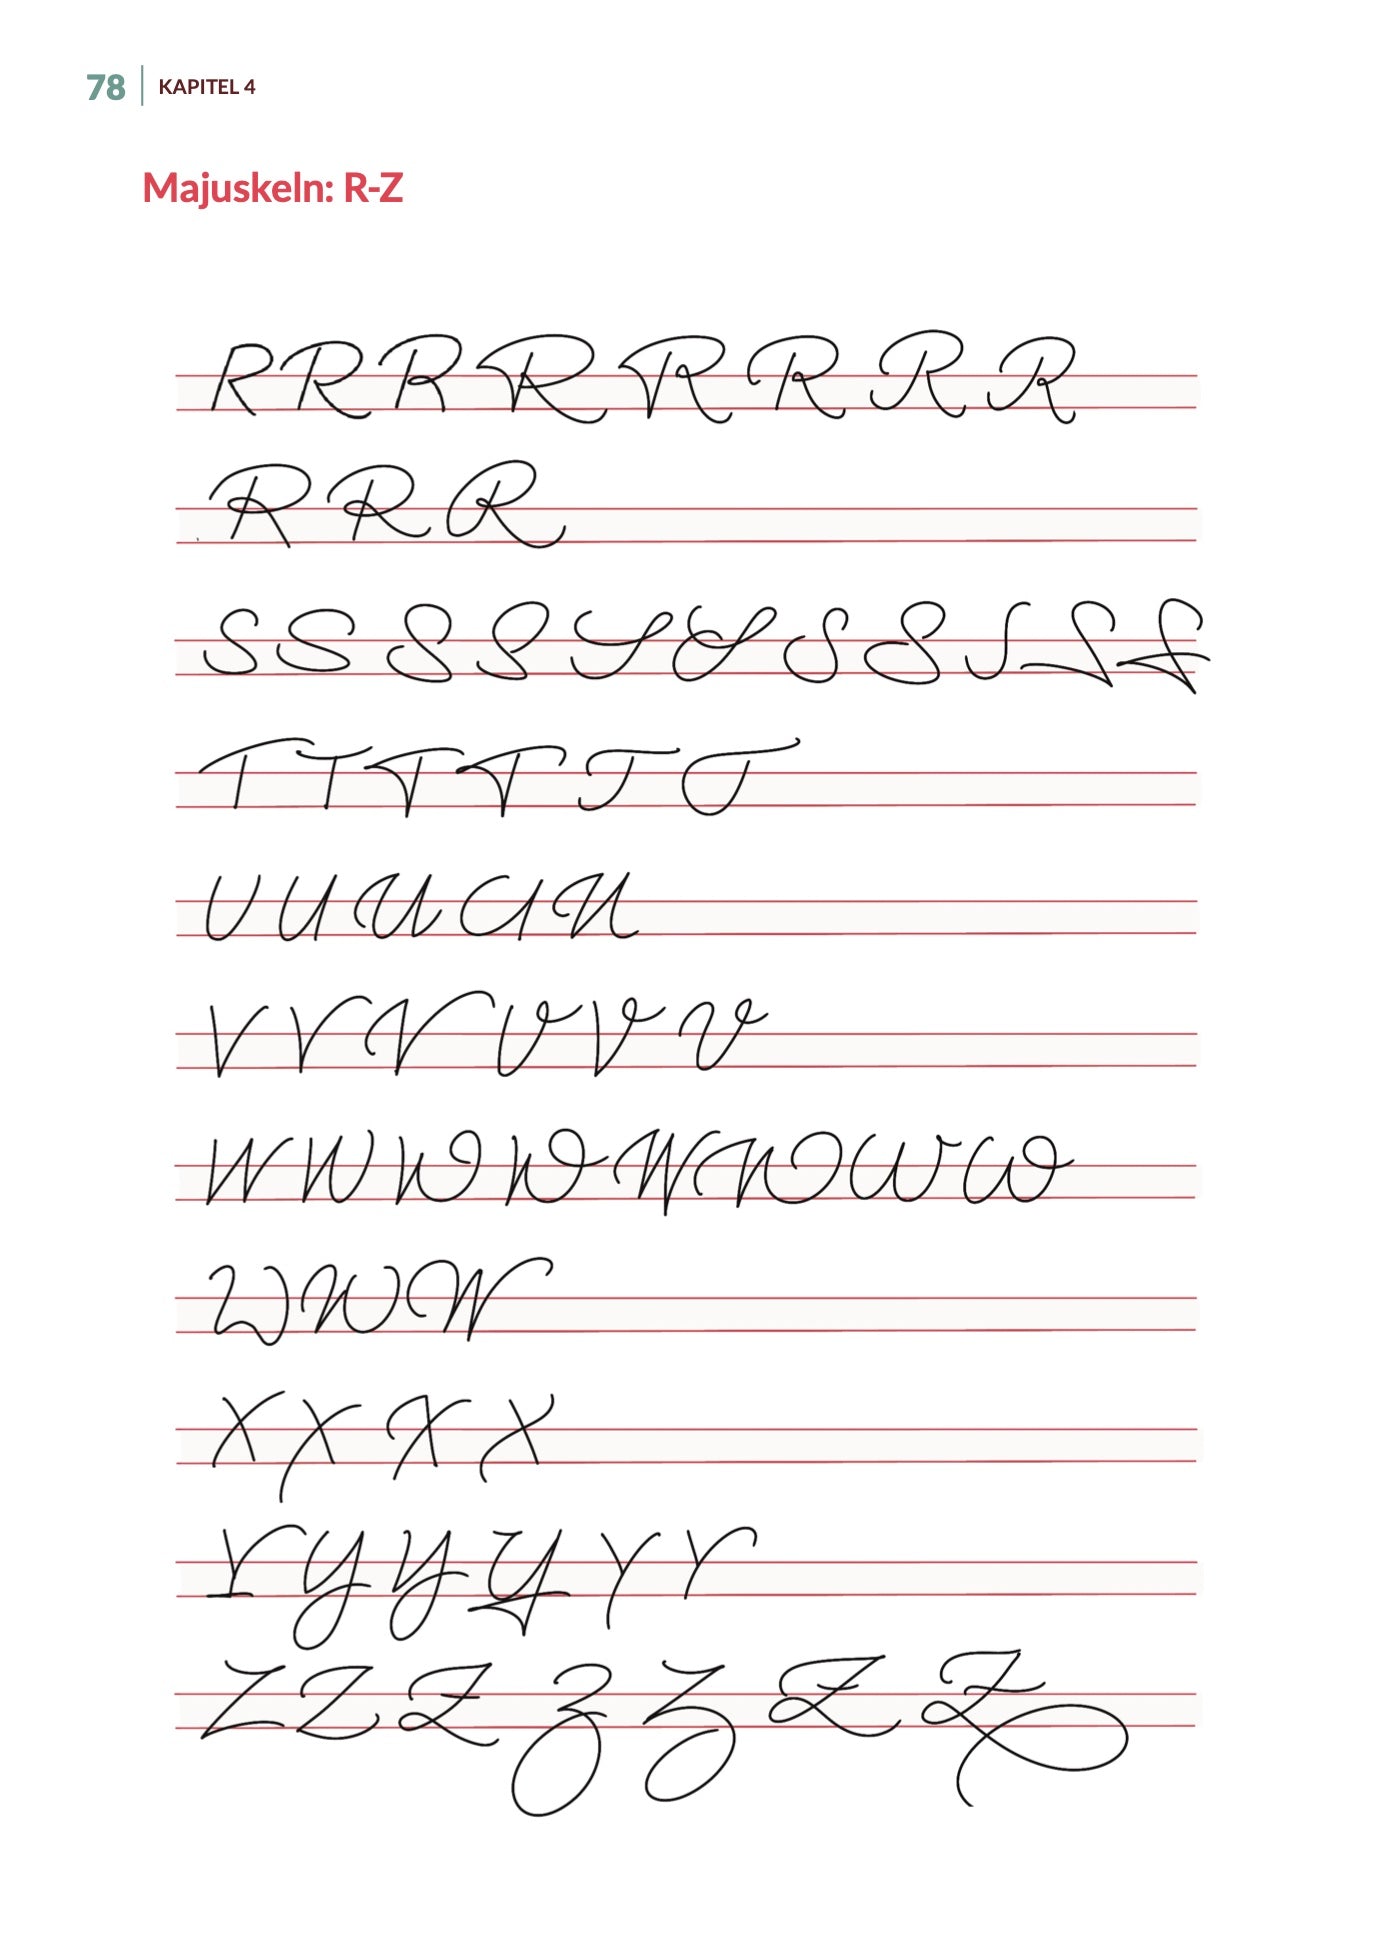 78 | KAPITEL 4
Majuskeln: R-Z
R R R R R R R R
R R R
S S S S S S S S S S S
T T T T T T
U U U U U
V V V V V V
W W W W W W W W
W W W
X X X X
Y Y Y Y Y Y
Z Z Z Z Z Z Z